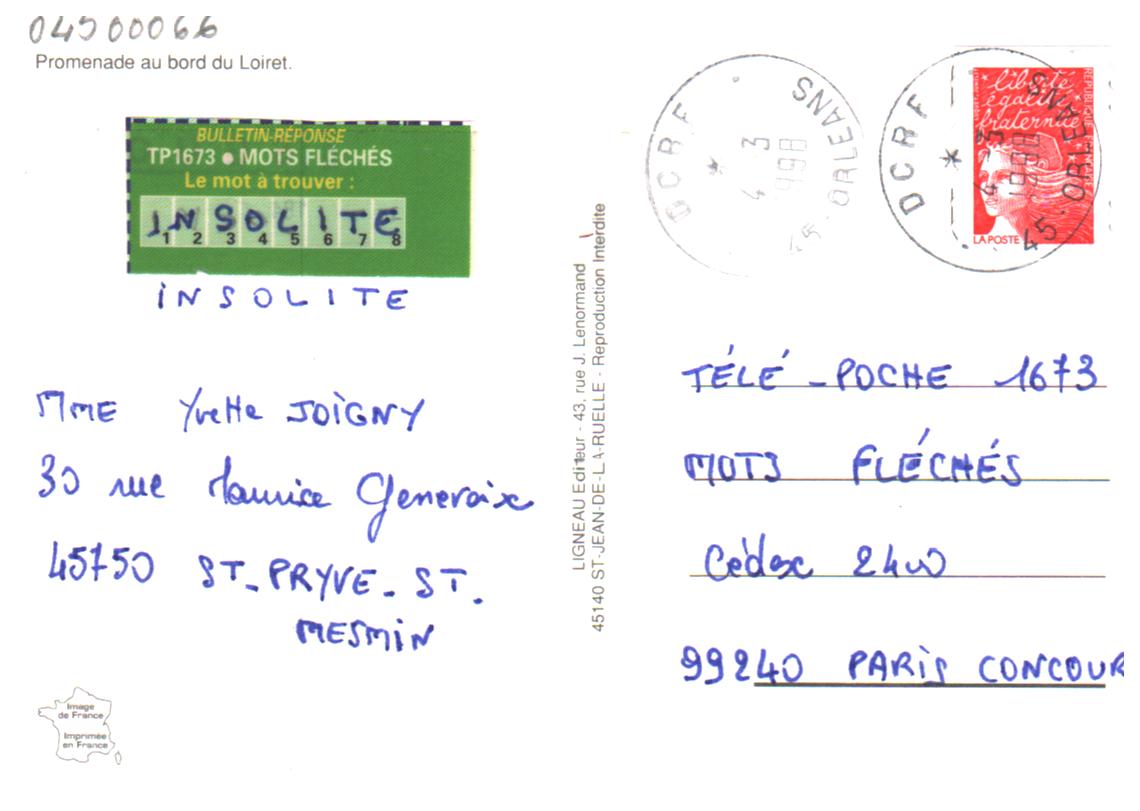 04500066
Promenade au bord du Loiret.
BULLETIN-RÉPONSE
TP1673 ● MOTS FLÉCHÉS
Le mot à trouver :
INSOLITE
1 2 3 4 5 6 7 8
INSOLITE
Mme Yvette JOIGNY
30 rue Maurice Genevoix
45750 ST-PRYVE-ST.
MESMIN
Image
de France
Imprimée
en France
LIGNEAU Editeur - 43, rue J. Lenormand
45140 ST-JEAN-DE-LA-RUELLE - Reproduction Interdite
DCRF * 45. ORLEANS
4 -3
1998
DCRF * 45. ORLEANS
4 -3
1998
liberté
égalité
fraternité
LA POSTE
TÉLÉ-POCHE 1673
MOTS FLÉCHÉS
Cédex 2400
99240 PARIS CONCOUR